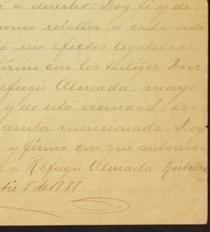 a derecho: Doy fé y de
relativo a cada inte
sus efectos legales en
firmo con los testigos Don
Refugio Almada, mayo
y de esta vecindad, en
arriba mencionada. Doy
y firma con que autoriso
Refugio Almada
de 1888